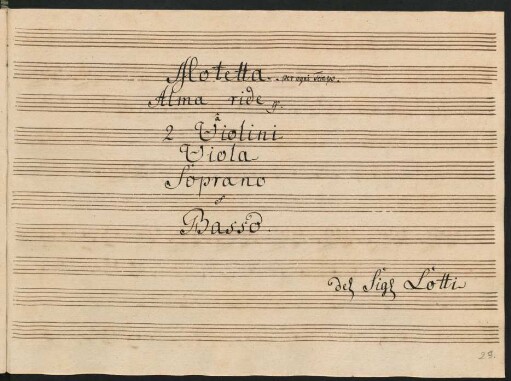 Motetta. per ogni Tempo.
Alma ride
à
2 Violini
Viola
Soprano
et
Basso.
del Sigr Lotti
29.